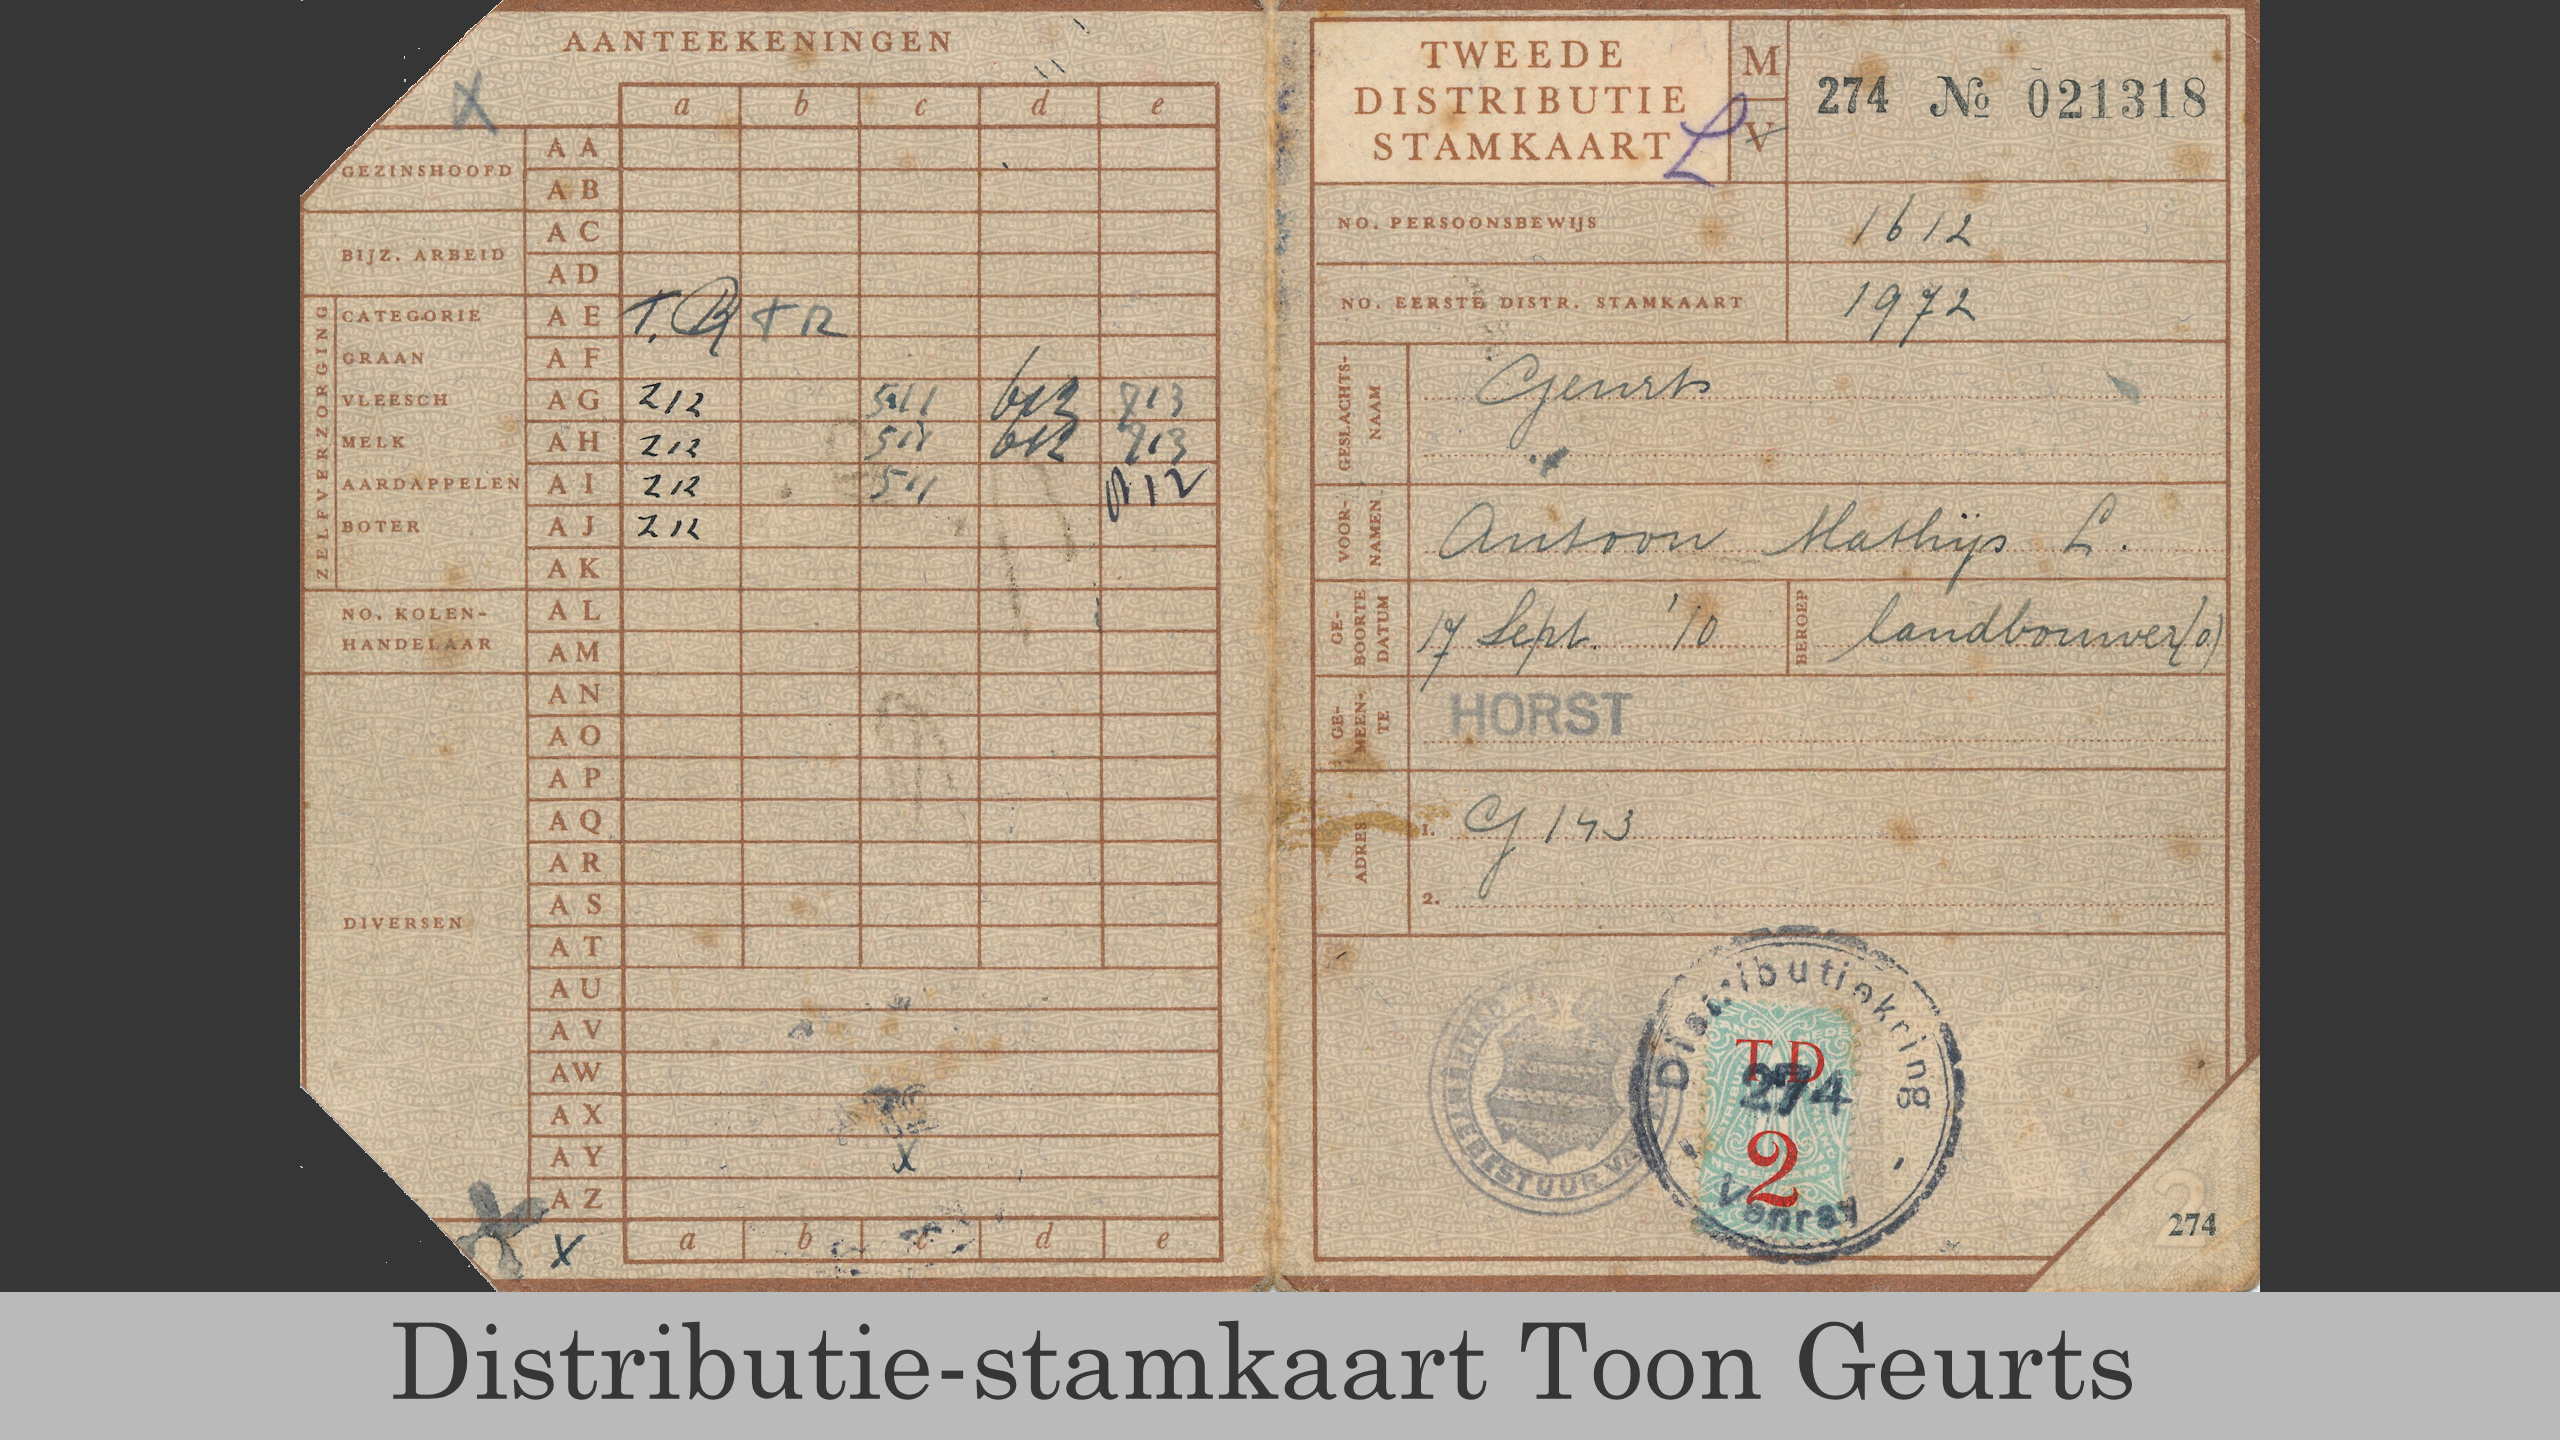 AANTEEKENINGEN
X
a b c d e
GEZINSHOOFD
A A
A B
BIJZ. ARBEID
A C
A D
ZELFVERZORGING
CATEGORIE A E
GRAAN A F
VLEESCH A G 212 511 613 713
MELK A H 212 511 612 713
AARDAPPELEN A I 212 511 812
BOTER A J 212
A K
NO. KOLEN-
HANDELAAR
A L
A M
DIVERSEN
A N
A O
A P
A Q
A R
A S
A T
A U
A V
A W
A X
A Y X
A Z
X a b c d e
TWEEDE
DISTRIBUTIE
STAMKAART
L
M
V
274 № 021318
NO. PERSOONSBEWIJS 1612
NO. EERSTE DISTR. STAMKAART 1972
GESLACHTS-
NAAM
Geurts
VOOR-
NAMEN
Antoon Mathijs L.
GE-
BOORTE
DATUM
17 Sept. '10
BEROEP
landbouwer(o)
GE-
MEEN-
TE
HORST
ADRES
1. G 143
2.
GEMEENTEBESTUUR
Distributiekring
TD
274
2
NEDERLAND
Venray
2
274
Distributie-stamkaart Toon Geurts